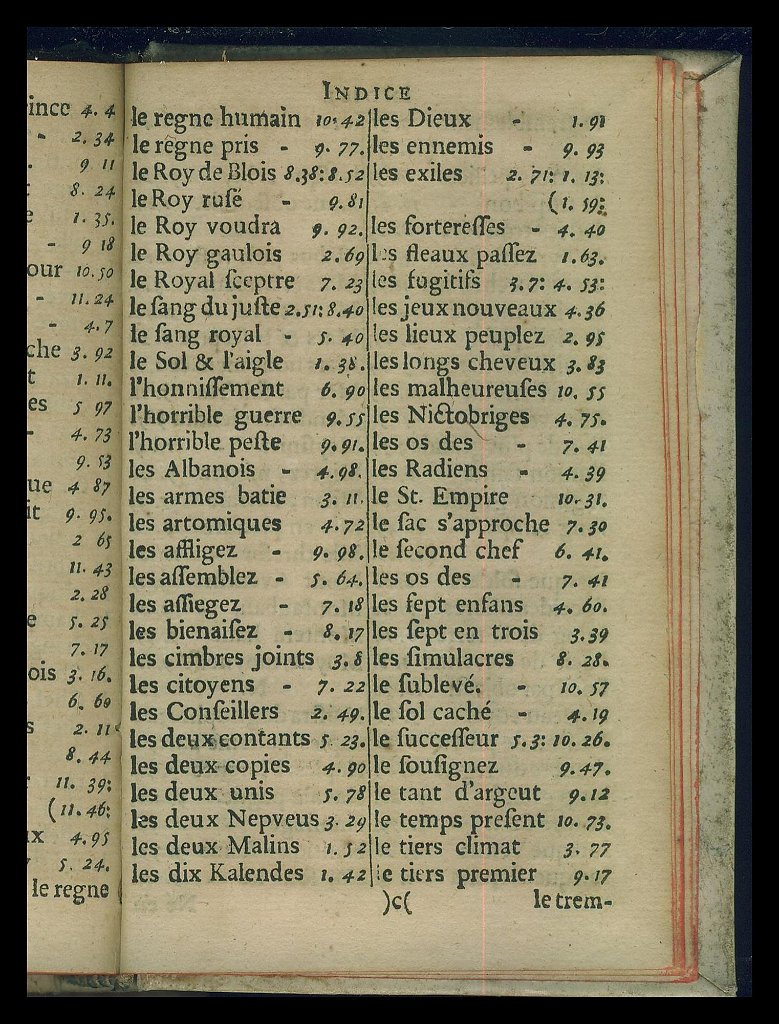 ince 4. 4
- 2. 34
. 9 11
8. 24
e 1. 35.
- 9 18
our 10. 50
- 11. 24
- 4. 7
che 3. 92
t 1. 11.
es 5 97
- 4. 73
9. 53
ue 4 87
it 9. 95.
2 65
11. 43
2. 28
e 5. 25
7. 17
ois 3. 16.
6. 60
s 2. 11
8. 44
11. 39:
(11. 46:
ux 4. 95
5. 24.
le regne
INDICE
le regne humain 10. 42
le regne pris - 9. 77.
le Roy de Blois 8.38: 8.52
le Roy rusé - 9. 81
le Roy voudra 9. 92.
le Roy gaulois 2. 69
le Royal ſceptre 7. 23
le ſang du juſte 2.51: 8.40
le ſang royal - 5. 40
le Sol & l'aigle 1. 38.
l'honniſſement 6. 90
l'horrible guerre 9. 55
l'horrible peſte 9. 91.
les Albanois - 4. 98.
les armes batie 3. 11.
les artomiques 4. 72
les affligez - 9. 98.
les aſſemblez - 5. 64.
les aſſiegez - 7. 18
les bienaiſez - 8. 17
les cimbres joints 3. 8
les citoyens - 7. 22
les Conſeillers 2. 49.
les deux contants 5 23.
les deux copies 4. 90
les deux unis 5. 78
les deux Nepveus 3. 29
les deux Malins 1. 52
les dix Kalendes 1. 42
les Dieux - 1. 91
les ennemis - 9. 93
les exiles 2. 71: 1. 13:
(1. 59:
les fortereſſes - 4. 40
les fleaux paſſez 1. 63.
les fugitifs 3. 7: 4. 53:
les jeux nouveaux 4. 36
les lieux peuplez 2. 95
les longs cheveux 3. 83
les malheureuſes 10. 55
les Nictobriges 4. 75.
les os des - 7. 41
les Radiens - 4. 39
le St. Empire 10. 31.
le ſac s'approche 7. 30
le ſecond chef 6. 41.
les os des - 7. 41
les ſept enfans 4. 60.
les ſept en trois 3. 39
les ſimulacres 8. 28.
le ſublevé. - 10. 57
le ſol caché - 4. 19
le ſucceſſeur 5. 3: 10. 26.
le ſouſignez 9. 47.
le tant d'argeut 9. 12
le temps preſent 10. 73.
le tiers climat 3. 77
le tiers premier 9. 17
)c(
le trem-